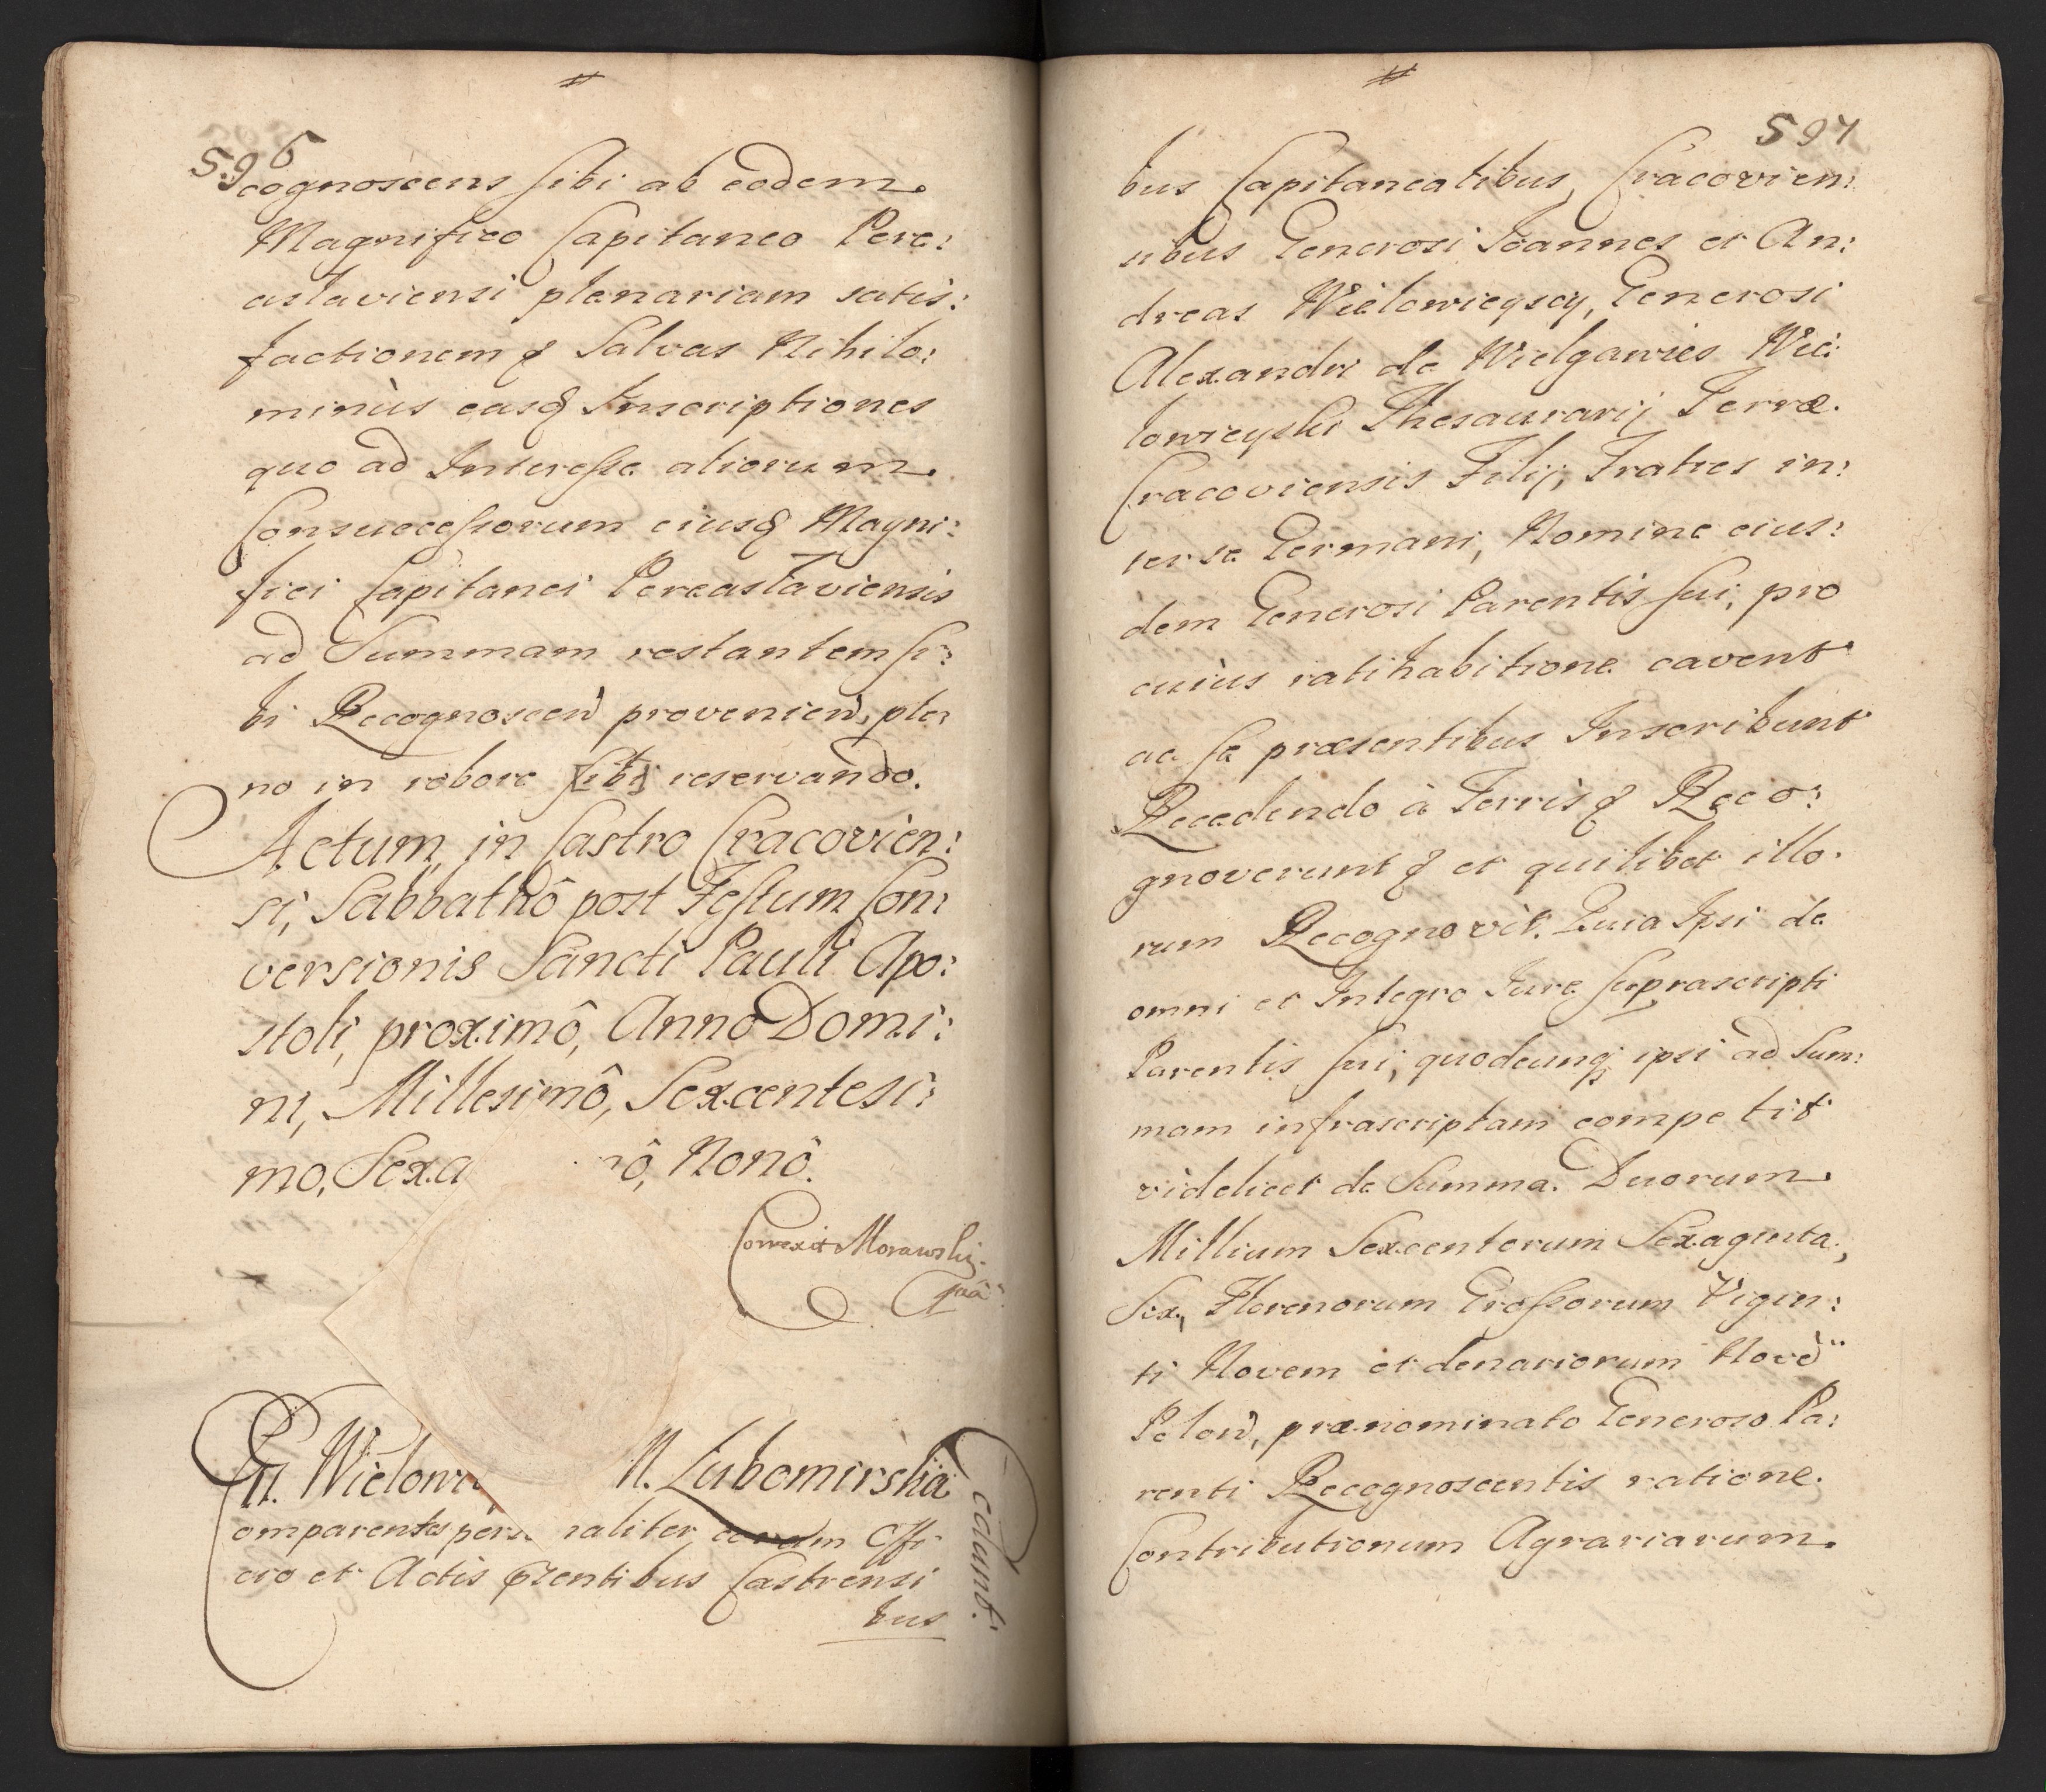 #
596
cognoscens sibi ab eodem
Magnifico Capitaneo Pere:
aslaviensi plenariam satis:
factionem & Salvas Nihilo:
minùs easq Inscriptiones
quo ad Interesse aliorum
Consuccessorum eiusq Magni:
fici Capitanei Pereaslaviensis
ad Summam restantem si:
bi Recognoscen provenien, ple:
no in robore [sibi] reservando.
Actum, in Castro Cracovien:
si, Sabbathô post Festum Con:
versionis Sancti Pauli Apo:
stoli, proximô, Annô Domi:
ni, Millesimô, Sexcentesi:
mo, Sexa ô, Nonô.
Correxit Morawski
Gn. Wielow M. Lubomirska
Cedunt.
Comparentes pers naliter coram Offi
cio et Actis Pñtentibus Castrensi
bus
#
597
bus Capitaneatibus, Cracovien:
sibus Generosi Joannes et An:
dreas Wielowieyscy, Generosi
Alexandri de Wielgawies Wie:
lowieyski Thesaurarij Terræ
Cracoviensis Filij, Fratres in:
ter se Germani, Nomine eius:
dem Generosi Parentis sui, pro
cuius ratihabitione cavent
ac se præsentibus Inscribunt
Recedendo à Terris & Reco:
gnoverunt & et quilibet illo:
rum Recognovit. Quia Ipsi de
omni et Integro Iure suprascripti
Parentis sui, quodcunq ipsi ad Sum:
mam infrascriptam competit
videlicet de Summa Duorum
Millium Sexcentorum Sexaginta,
Sex, Florenorum Grossorum Vigin:
ti Novem et denariorum Nove
Polon, prænominato Generoso Pa:
renti Recognoscentis ratione
Contributionum Agrariarum